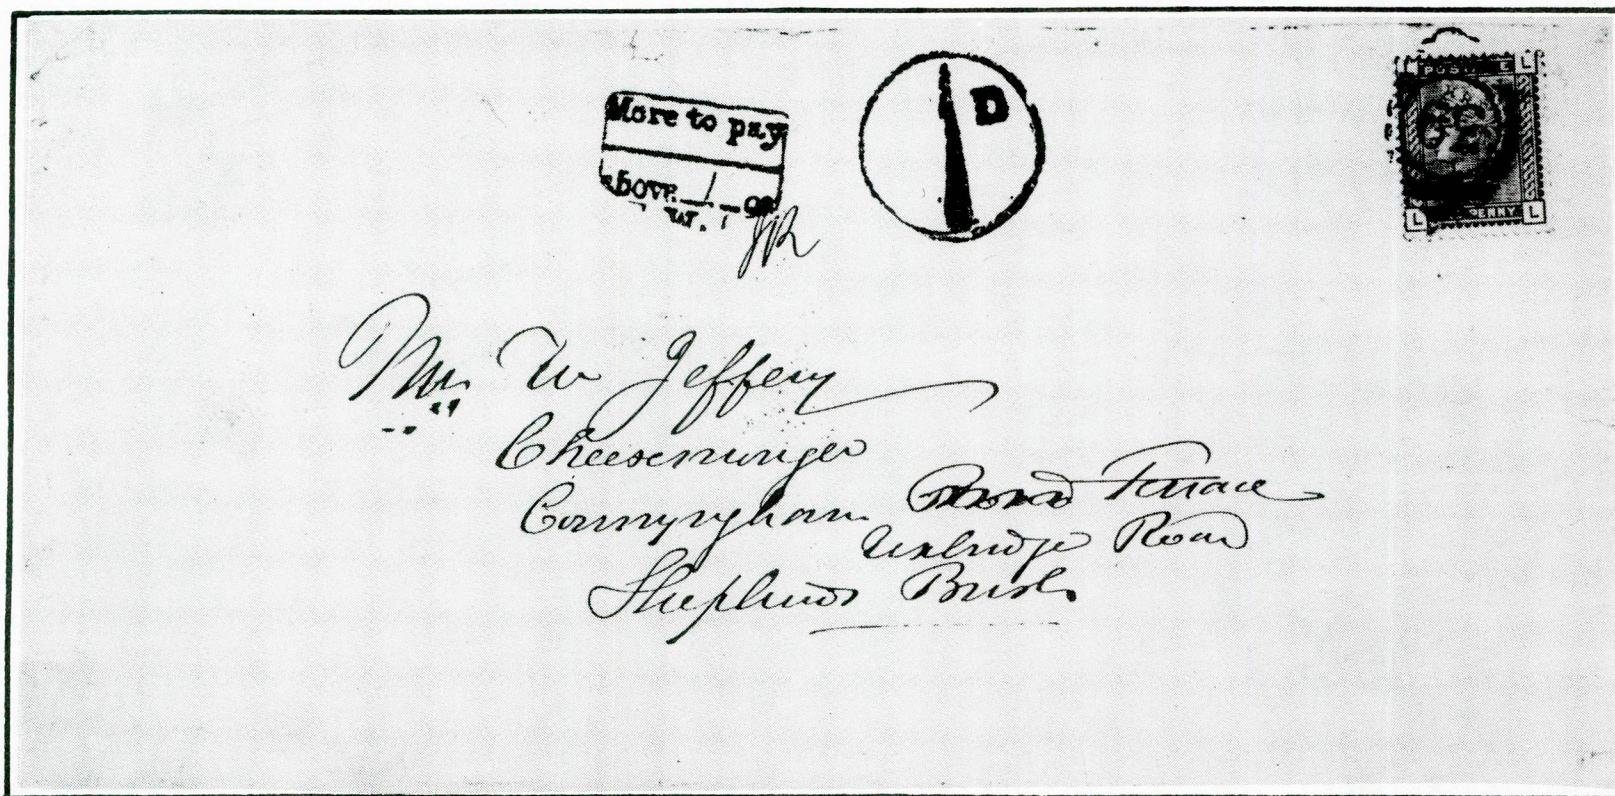 More to pay
above 1 oz
W.
JR
1 D
POSTAGE L
L PENNY L
Mr W Jeffery
Cheesemunger
Connyngham Terrace
Uxbridge Road
Shepherds Bush